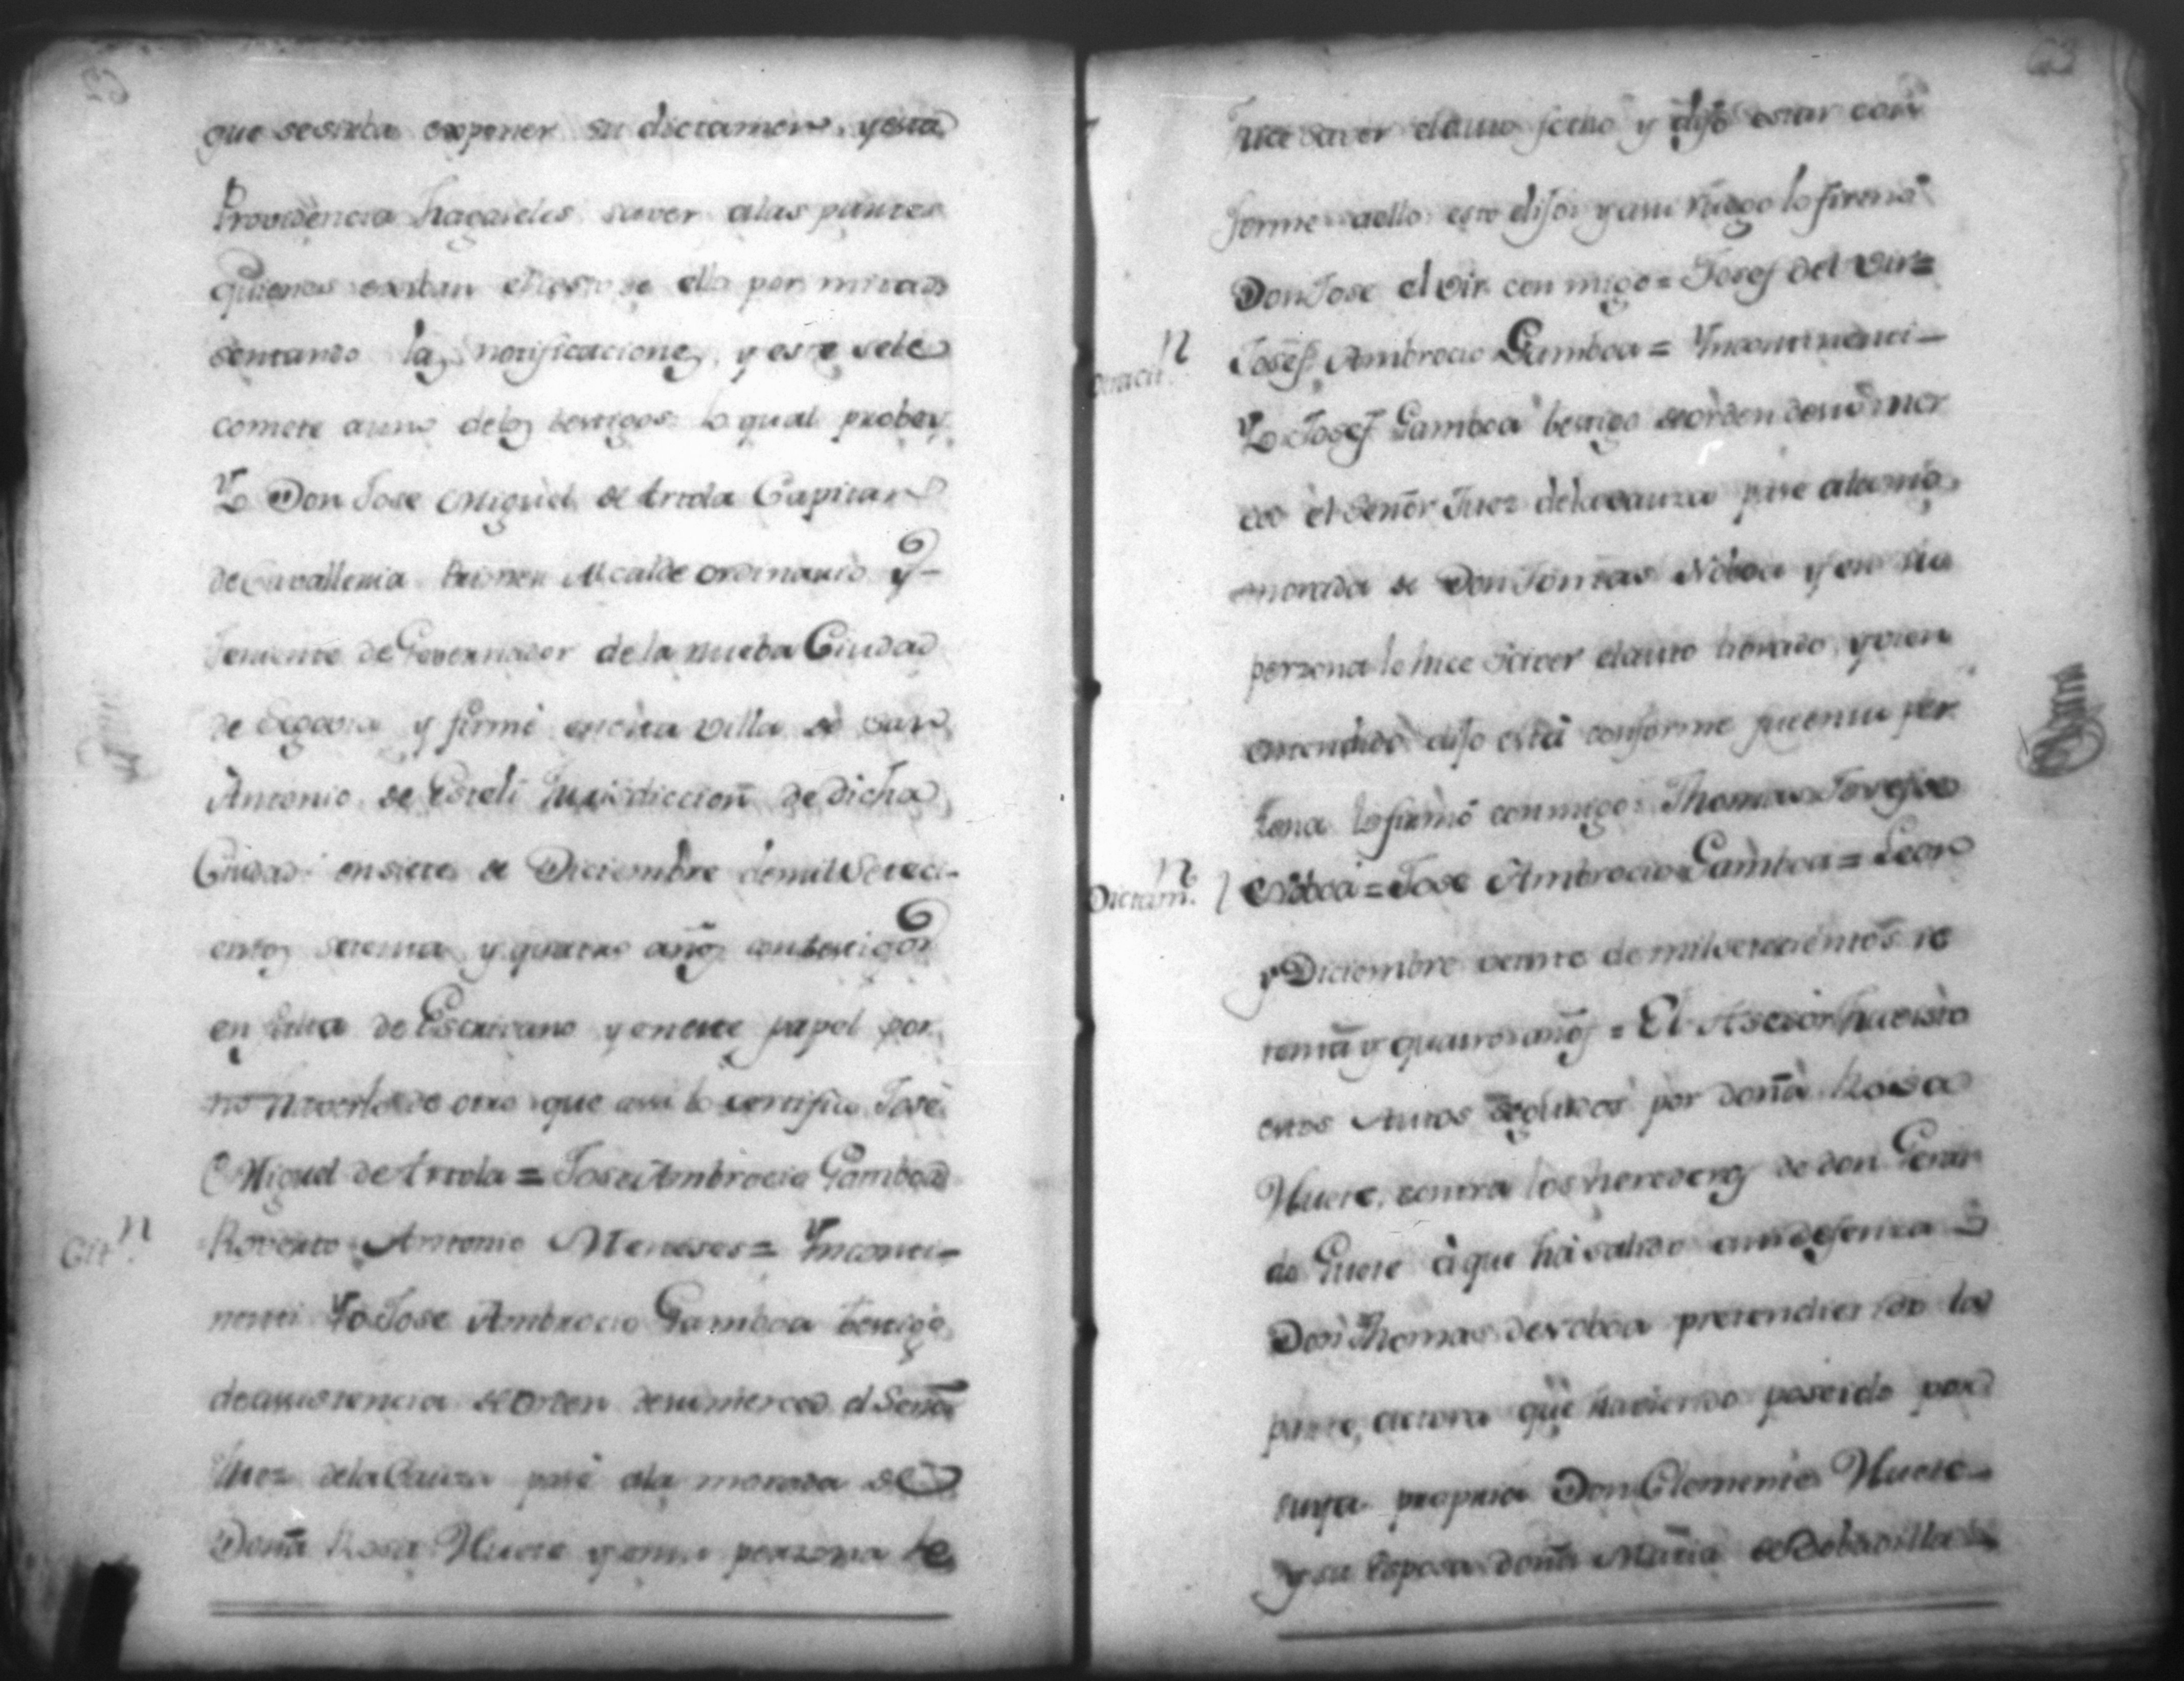 63
que se sirba exponer su dictamen, y esta
Providencia hagaseles saver a las partes
quienes exiban el costo de ella por mitad
sentando las notificaciones, y este se le
comete a uno de los testigos lo qual probey
Yo Don Jose Miguel de Artola Capitan
de Cavalleria Primer Alcalde ordinario y
Teniente de Governador de la nueba Ciudad
de Segovia y firmé en esta villa de san
Antonio de Estelí Jurisdiccion de dicha
Ciudad en siete de Diciembre de mil Seteci-
entos setenta y quatro años con testigos
en falta de Escrivano y en este papel por
no haverlo de otro que assi lo certifico Jose
Miguel de Artola = Jose Ambrocio Gamboa
Citn.
Roverto Antonio Meneses = Yncontі-
nenti Yo Jose Ambrocio Gamboa testigo
de assistencia de orden de su merced el Señor
Juez de la Cauza pasé a la morada de
Doña Rosa Huete y en su perzona le
hice saver el auto fecho y dijo estar con
forme a ello esto dijo y a su ruego lo firmó
Don Jose elvir con migo = Josef del vir =
n
Josef Ambrocio Gamboa = Yncontinenti
Yo Josef Gamboa testigo de orden de su mer
ced el Señor Juez de la cauza pase a la mo
morada de Don Tomas Noboa y en su
perzona le hice saver el auto y vien
entendido dijo está conforme fue en su per
zona lo firmó conmigo Thomas
Dictamn.
Noboa = Jose Ambrocio Gamboa = Leon
y Diciembre veinte de mil setecientos se
tenta y quatro años = El Asesor ha visto
estos Autos seguidos por doña Rosa
Huete, contra los herederos de don
de Huete à que ha salido a su defenza
Don Thomas de Noboa pretendiendo la
parte actora que haviendo poseido por
suya propria Don Clemente Huete
y su Esposa doña Maria de Bobadilla